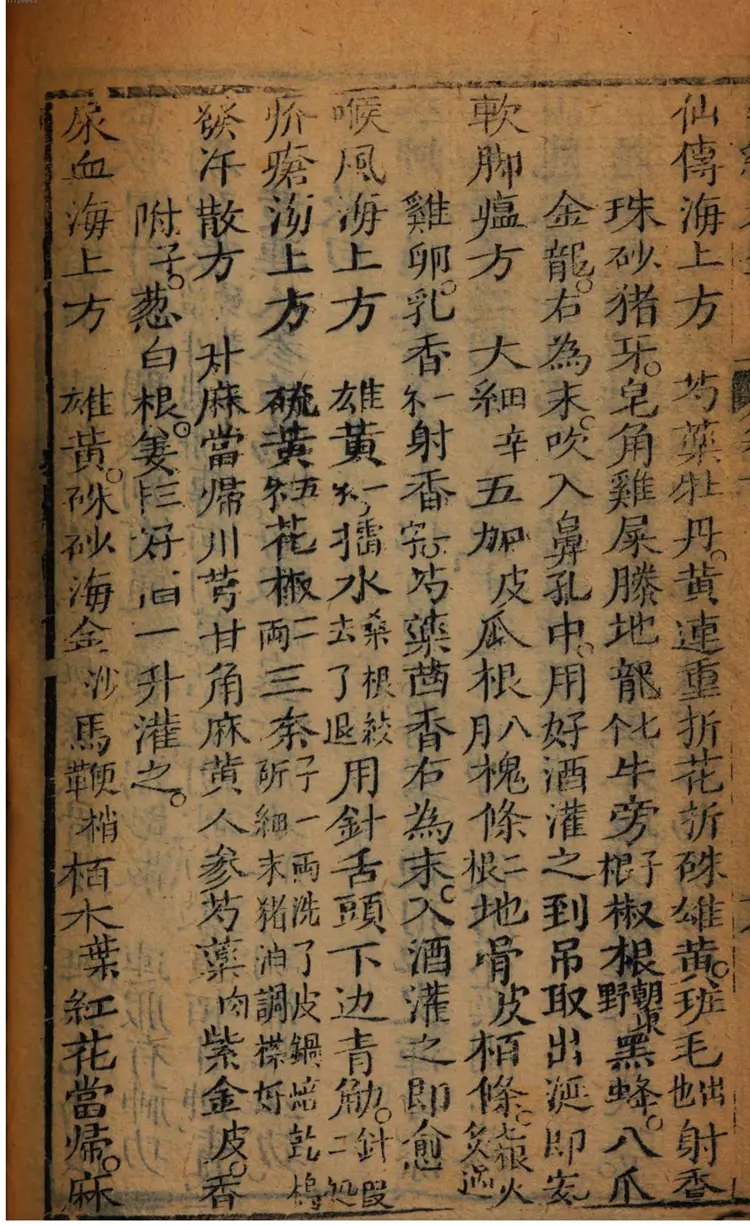 仙傳海上方 芍藥牡丹。黃連重折花折硃雄黃。班毛出也射香
珠砂猪牙。皂角雞屎籐地龍七个牛旁子根椒根朝東野黑蜂。八爪
金龍。右為末。吹入鼻孔中。用好酒灌之到吊取出涎即安
軟脚瘟方 大細辛五加皮瓜根八月槐條二根地骨皮栢條。根火炙過
雞卵。乳香一射香芍藥茴香右為末。入酒灌之即愈
喉風海上方 雄黃一擂水桑根去了退用針舌頭下边青觔。二針
疥瘡海上方 硫黃五花椒二兩三柰子一兩洗了皮鍋焙乾所細末猪油調搽好
發汗散方 升麻當歸川芎甘角麻黃人參芍藥肉紫金皮。香
附子。葱白根。姜三好酒一升灌之。
尿血海上方 雄黃。硃砂海金沙馬鞭梢栢木葉紅花當歸。麻